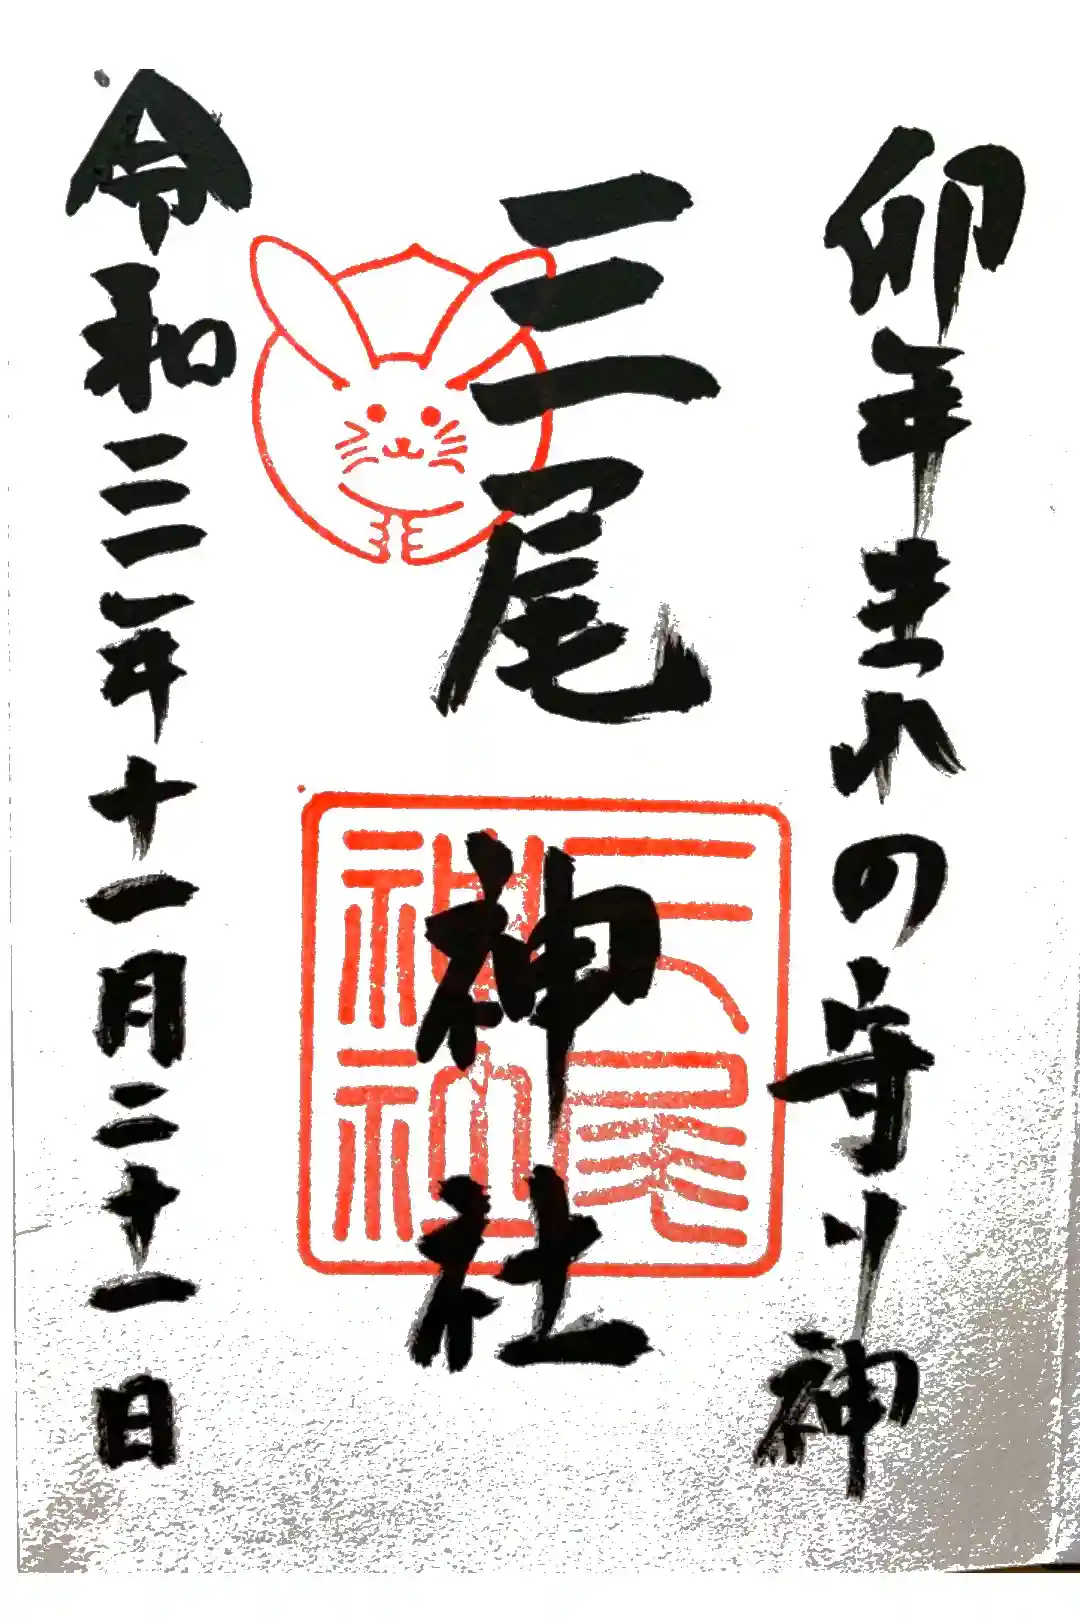 卯年まれの守り神
三尾神社
三尾神社
令和三年十一月二十一日